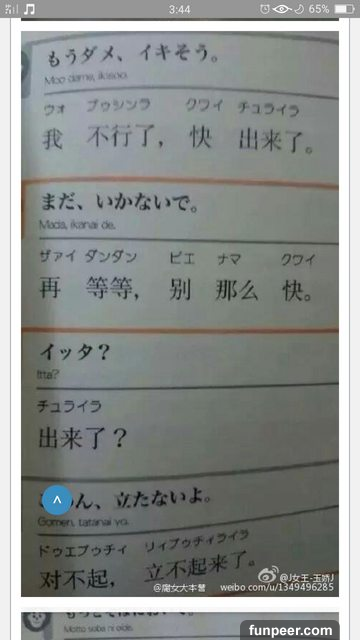 3:44
65%
もうダメ、イキそう。
Moo dame, ikisoo.
ウォ プゥシンラ クワイ チュライラ
我 不行了， 快 出来了。
まだ、いかないで。
Mada, ikanai de.
ザァイ ダンダン ビエ ナマ クワイ
再 等等， 别 那么 快。
イッタ？
Itta?
チュライラ
出来了？
めん、立たないよ。
Gomen, tatanai yo.
ドゥエプゥチィ リィプゥチィライラ
对不起， 立不起来了。
@J女王-玉娇J
@魔女大本营 weibo.com/u/1349496285
Motto soba ni oide.
funpeer.com